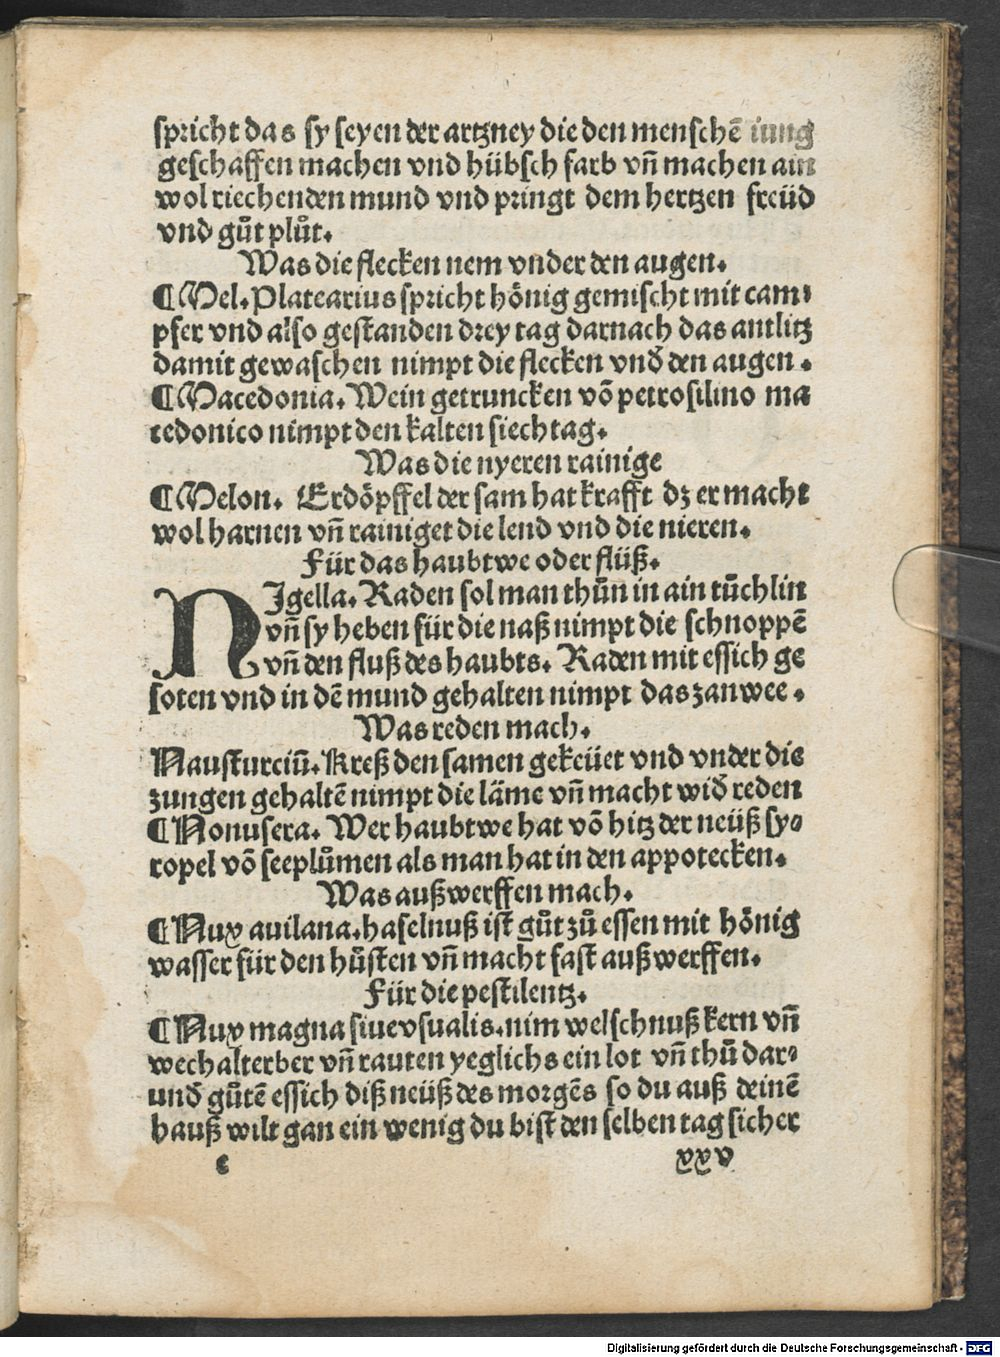 spricht das sy seyen der artzney die den menschē iung
geschaffen machen vnd hübsch farb vñ machen ain
wol riechenden mund vnd pringt dem hertzen freüd
vnd gůt plůt.
Was die flecken nem vnder den augen.
¶Mel. Platearius spricht hönig gemischt mit cam⸗
pfer vnd also gestanden drey tag darnach das antlitz
damit gewaschen nimpt die flecken vnd̕ den augen.
¶Macedonia. Wein getruncken võ petrosilino ma
cedonico nimpt den kalten siechtag.
Was die nyeren rainige
¶Melon. Erdöpffel der sam hat krafft dz er macht
wol harnen vñ rainiget die lend vnd die nieren.
Für das haubtwe oder flüß.
NIgella. Raden sol man thůn in ain tůchlin
vñ sy heben für die naß nimpt die schnoppē
vñ den fluß des haubts. Raden mit essich ge
soten vnd in dē mund gehalten nimpt das zanwee.
Was reden mach.
Nausturciū. Kreß den samen gekeüet vnd vnder die
zungen gehaltē nimpt die läme vñ macht wid̕ reden
¶Nonufera. Wer haubtwe hat võ hitz der neüß sy⸗
ropel võ seeplůmen als man hat in den appotecken.
Was außwerffen mach.
¶Nux auilana. haselnuß ist gůt zů essen mit hönig
wasser für den hůsten vñ macht fast außwerffen.
Für die pestilentz.
¶Nux magna siue vsualis. nim welschnuß kern vñ
wechalterber vñ rauten yeglichs ein lot vñ thů dar⸗
und̕ gůtē essich diß neüß des morgēs so du auß deinē
hauß wilt gan ein wenig du bist den selben tag sicher
c xxv
Digitalisierung gefördert durch die Deutsche Forschungsgemeinschaft - DFG